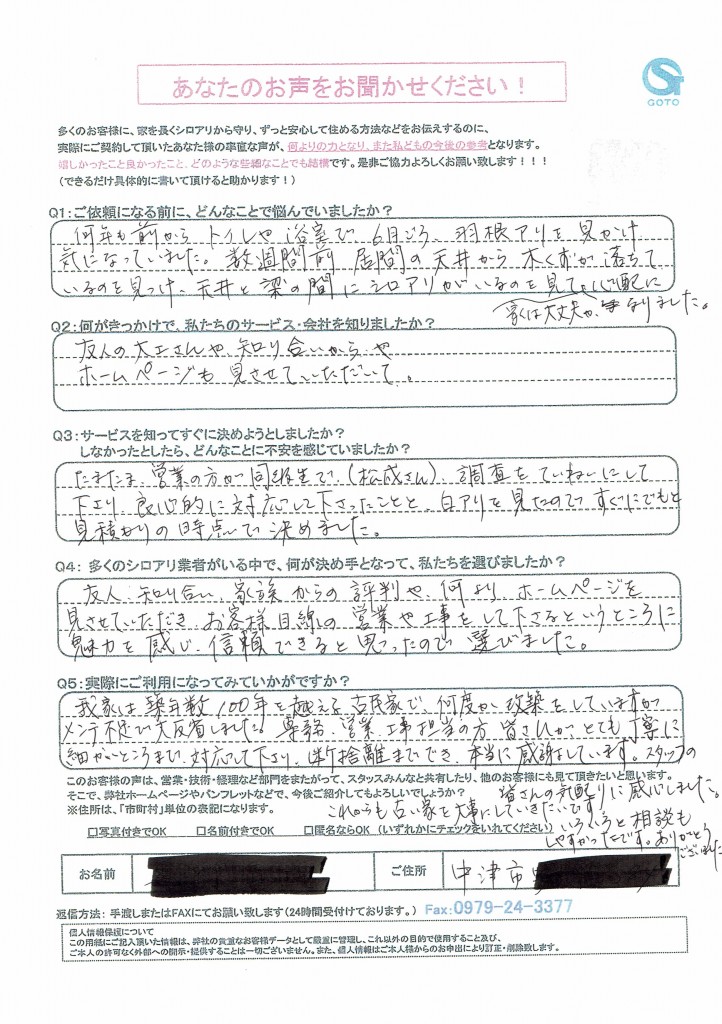 あなたのお声をお聞かせください！
GOTO
多くのお客様に、家を長くシロアリから守り、ずっと安心して住める方法などをお伝えするのに、
実際にご契約して頂いたあなた様の率直な声が、何よりの力となり、また私どもの今後の参考となります。
嬉しかったこと良かったこと、どのような些細なことでも結構です。是非ご協力よろしくお願い致します！！！
（できるだけ具体的に書いて頂けると助かります！）
Q1：ご依頼になる前に、どんなことで悩んでいましたか？
何年も前から トイレや 浴室で 6月ごろ、羽根アリを見かけ
気になっていました。数週間前 居間の天井から 木くずが 落ちて
いるのを見つけ、天井と 梁の間に シロアリがいるのを見て、心配に
家は大丈夫か、なりました。
Q2：何がきっかけで、私たちのサービス・会社を知りましたか？
友人の大工さんや 知り合いから、や
ホームページも 見させていただいて。
Q3：サービスを知ってすぐに決めようとしましたか？
しなかったとしたら、どんなことに不安を感じていましたか？
たまたま、営業の方が 同級生で、（松成さん）、調査を ていねいにして
下さり、良心的に 対応して下さったことと、白アリを見たので すぐにでもと
見積かりの時点で 決めました。
Q4： 多くのシロアリ業者がいる中で、何が決め手となって、私たちを選びましたか？
友人、知り合い、家族 からの 評判や、何より、ホームページを
見させていただき、お客様目線の 営業や工事をして下さるというところに
魅力を 感じ、信頼できると 思ったので 選びました。
Q5：実際にご利用になってみていかがですか？
我家は 築年数100年を越える 古民家で、何度か 改築を していますが
メンテ不足で 大反省しました。専務、営業、工事担当の方 皆さんが、とても 丁寧に
細かいところまで、対応して下さり、断捨離までもでき、本当に感謝しています。スタッフの
このお客様の声は、営業・技術・経理など部門をまたがって、スタッスみんなと共有したり、他のお客様にも見て頂きたいと思います。
皆さんの気配りに感心しました。
そこで、弊社ホームページやパンフレットなどで、今後ご紹介してもよろしいでしょうか？
※住所は、「市町村」単位の表記になります。
これからも 古い家を 大事にしていきたいです。
□写真付きでOK　□名前付きでOK　□匿名ならOK （いずれかにチェックをいれてください）
いろいろと相談も
しやすかったです。ありがとう
ございました
お名前
ご住所
中津市
返信方法： 手渡しまたはFAXにてお願い致します（24時間受付けております。） Fax:0979-24-3377
個人情報保護について
この用紙にご記入頂いた情報は、弊社の貴重なお客様データとして厳重に管理し、これ以外の目的で使用すること及び、
ご本人の許可なく外部への開示・提供することは一切ございません。また、個人情報はご本人様からのお申出により訂正・削除致します。